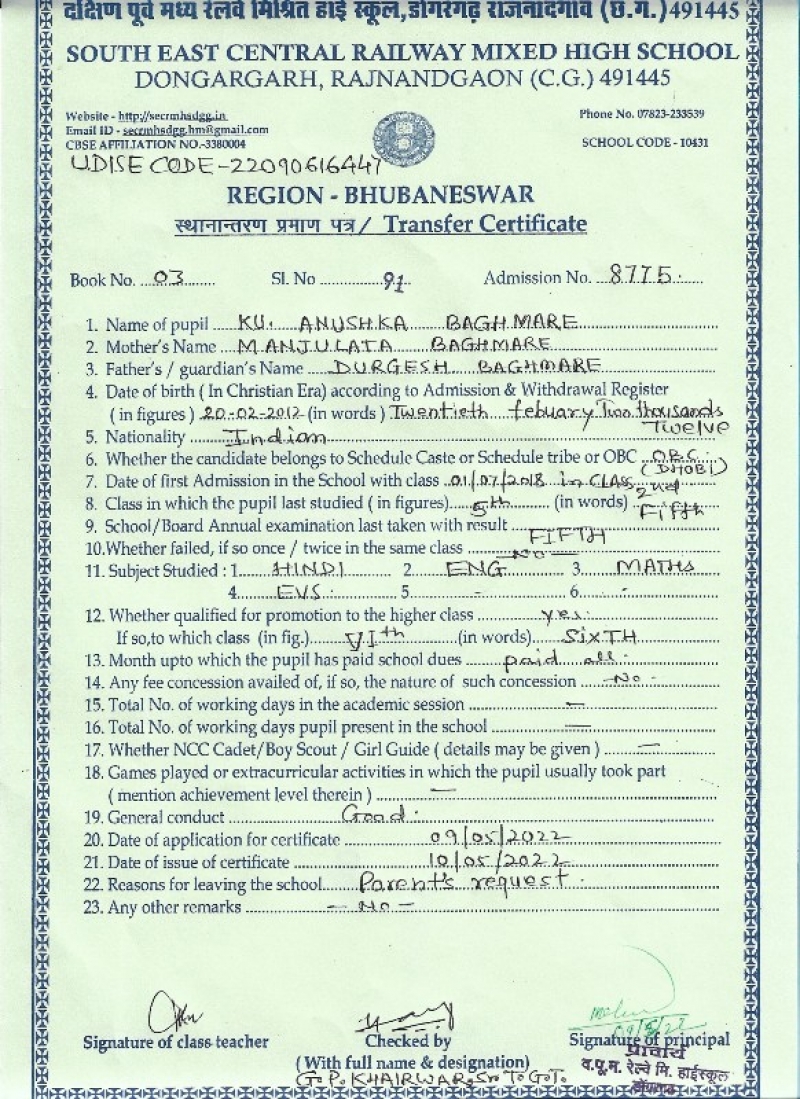 दक्षिण पूर्व मध्य रेलवे मिश्रित हाई स्कूल, डोंगरगढ़ राजनांदगांव (छ.ग.) 491445
SOUTH EAST CENTRAL RAILWAY MIXED HIGH SCHOOL
DONGARGARH, RAJNANDGAON (C.G.) 491445
Website - http://secrmhsdgg.in
Phone No. 07823-233539
Email ID - secrmhsdgg.hm@gmail.com
CBSE AFFILIATION NO.-3380004
SCHOOL CODE - 10431
UDISE CODE-22090616447
REGION - BHUBANESWAR
स्थानान्तरण प्रमाण पत्र / Transfer Certificate
Book No. 03 Sl. No 91 Admission No. 8775
1. Name of pupil KU. ANUSHKA BAGHMARE
2. Mother's Name MANJULATA BAGHMARE
3. Father's / guardian's Name DURGESH BAGHMARE
4. Date of birth ( In Christian Era) according to Admission & Withdrawal Register
( in figures ) 20-02-2012 (in words ) Twentieth febuary Two thousands
Twelve
5. Nationality Indian
6. Whether the candidate belongs to Schedule Caste or Schedule tribe or OBC O.B.C.
(DHOBI)
7. Date of first Admission in the School with class 01/07/2018 in CLASS
2nd
8. Class in which the pupil last studied ( in figures) 5th (in words) Fifth
9. School/Board Annual examination last taken with result FIFTH
10. Whether failed, if so once / twice in the same class — NO —
11. Subject Studied : 1 HINDI 2 ENG 3. MATHS
4 EVS 5 - 6. -
12. Whether qualified for promotion to the higher class yes.
If so, to which class (in fig.) VIth (in words) SIXTH
13. Month upto which the pupil has paid school dues paid all.
14. Any fee concession availed of, if so, the nature of such concession -No-
15. Total No. of working days in the academic session —
16. Total No. of working days pupil present in the school —
17. Whether NCC Cadet/Boy Scout / Girl Guide ( details may be given ) —
18. Games played or extracurricular activities in which the pupil usually took part
( mention achievement level therein ) —
19. General conduct Good.
20. Date of application for certificate 09/05/2022
21. Date of issue of certificate 10/05/2022
22. Reasons for leaving the school Parent's request.
23. Any other remarks — No —
09/5/22
Signature of class teacher Checked by Signature of principal
(With full name & designation)
G.P. KHAIRWAR, Sr. T.G.T.
प्राचार्य
द.पू.म. रेल्वे मि. हाईस्कूल
डोंगरगढ़